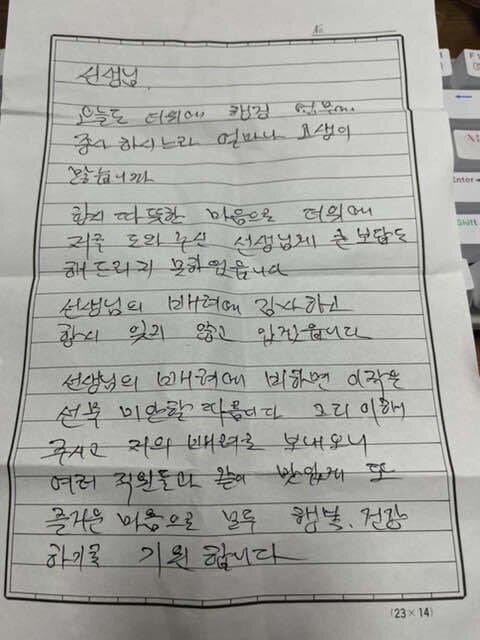 No
선생님.
오늘도 더위에 행정 업무에
종사 하시느라 얼마나 고생이
많습니까
항시 따뜻한 마음으로 더위에
저를 도와 주신 선생님께 큰 보답도
해 드리지 못하였읍니다
선생님의 배려에 감사하고
항시 잊지 않고 있겠읍니다
선생님의 배려에 비하면 이작은
선무 미안할 따름니다 그리 이해
주시고 저의 배려를 보내오니
여러 직원들과 같이 맛있게 또
즐거운 마음으로 모두 행복, 건강
하기를 기원 합니다
(23×14)
Enter
Shift